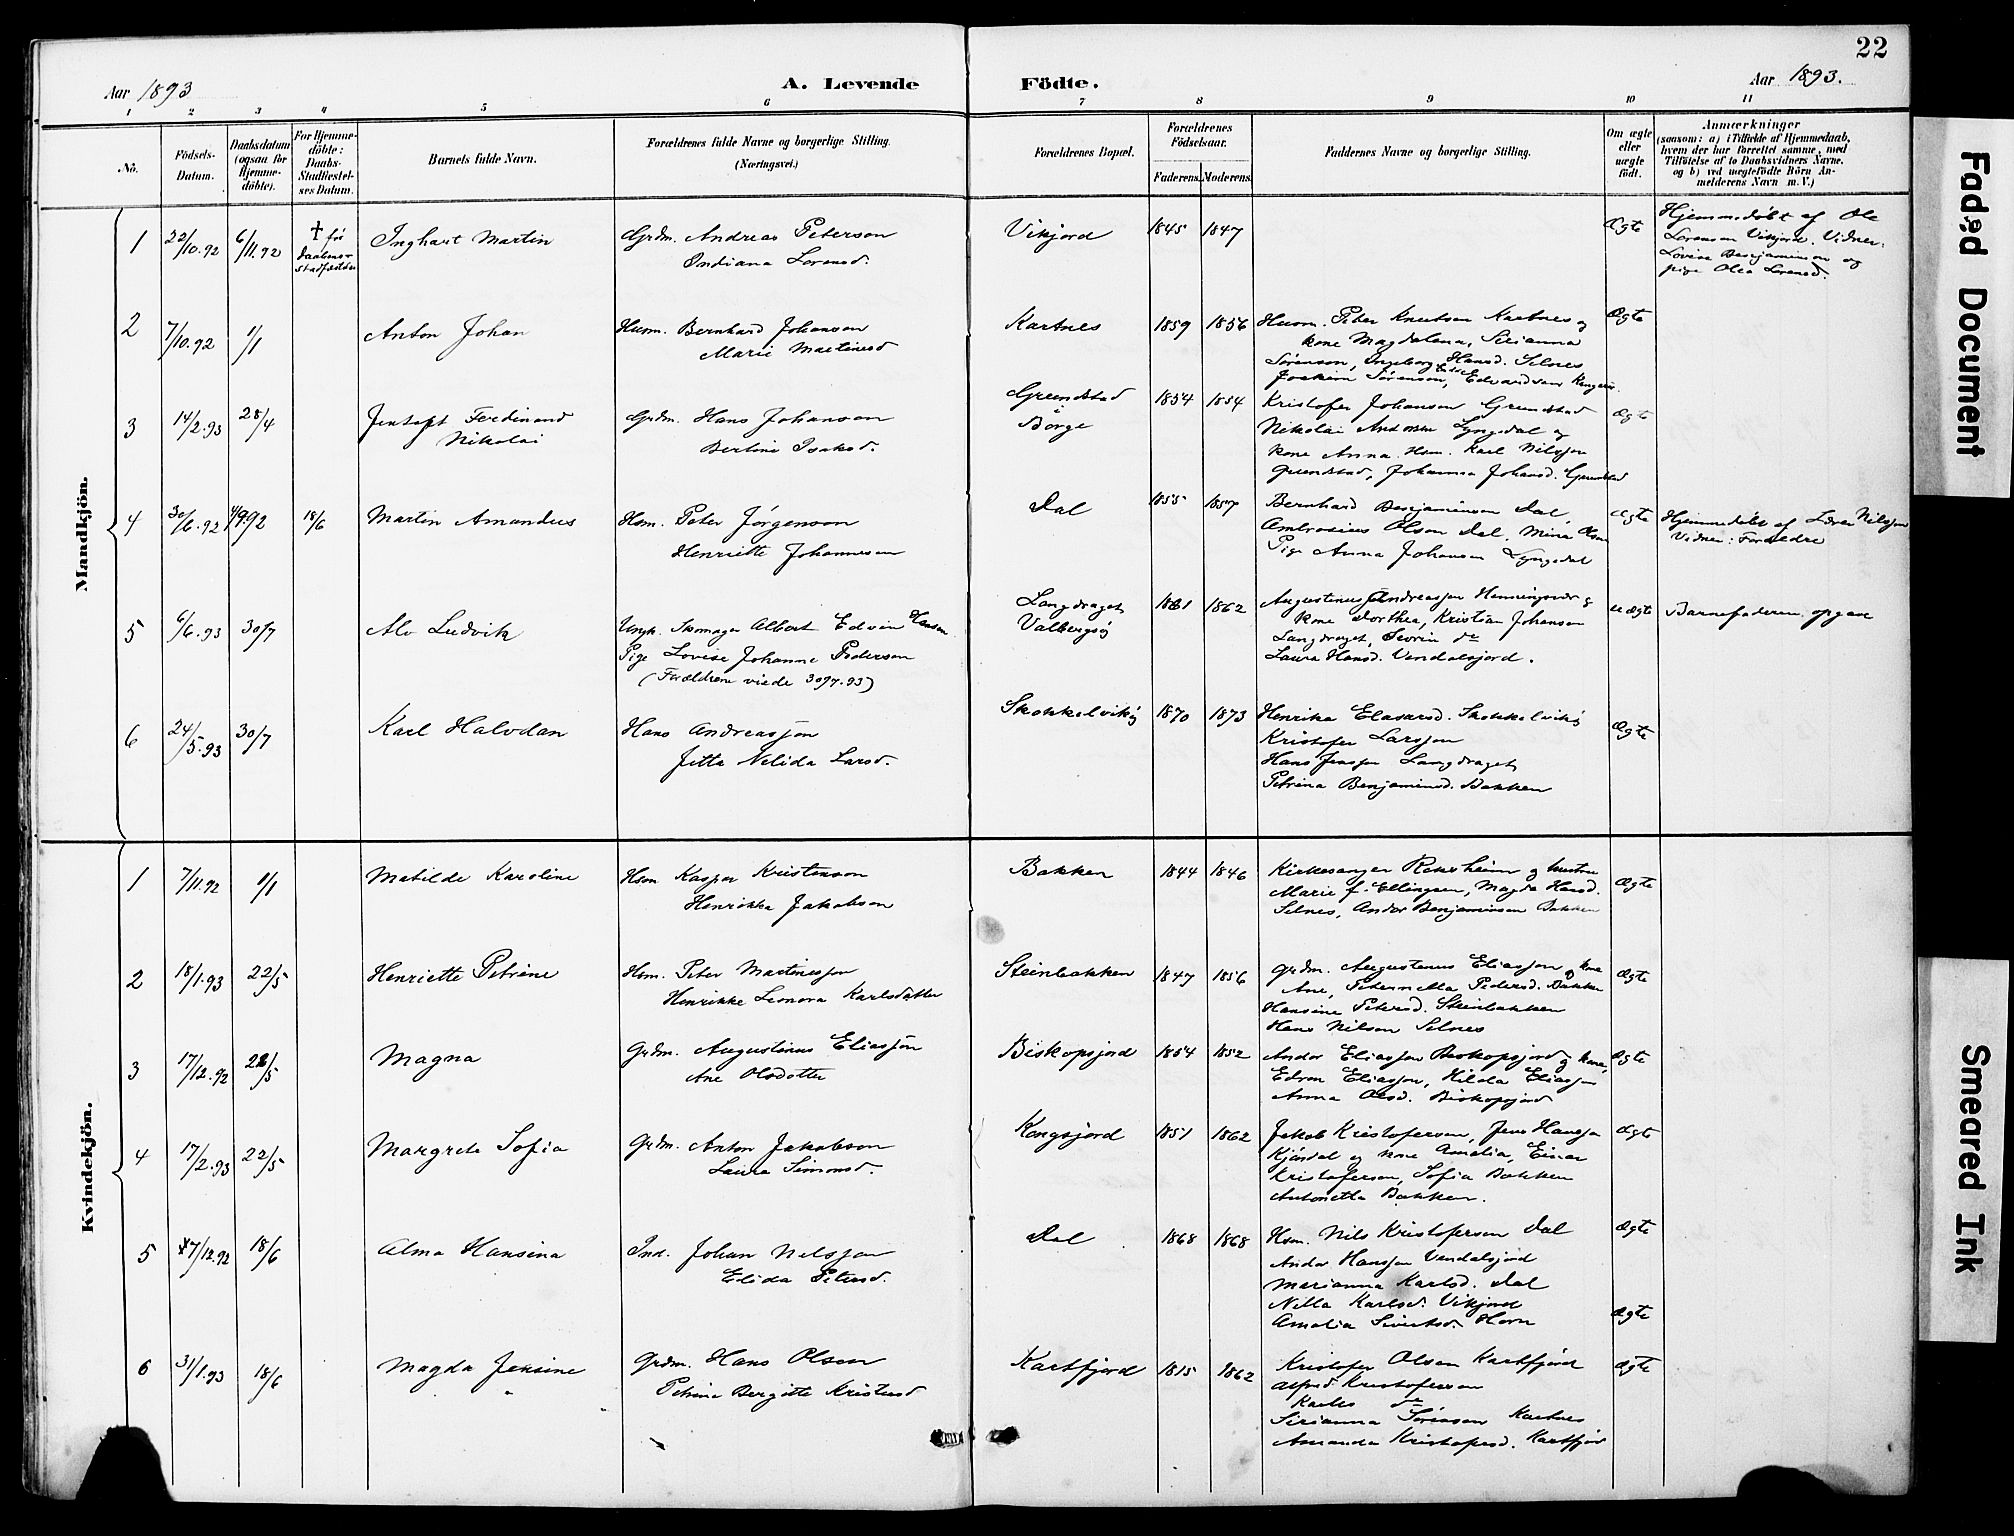 22
Aar 1893
A. Levende Födte.
Aar 1893.
1 2 3 4 5 6 7 8 9 10 11
No.
Födsels-
Datum.
Daabsdatum
(ogsaa for
Hjemme-
döbte).
For Hjemme-
döbte:
Daabs-
Stadfæstel-
ses Datum.
Barnets fulde Navn.
Forældrenes fulde Navne og borgerlige Stilling.
(Næringsvei.)
Forældrenes Bopæl.
Forældrenes
Födselsaar.
Faderens. Moderens.
Faddernes Navne og borgerlige Stilling.
Om ægte
eller
uægte
födt.
Anmærkninger
(saasom: a) i Tilfælde af Hjemmedaab,
hvem der har forrettet samme, med
Tilföielse af to Daabsvidners Navne.
og b) ved uægtefödte Börn An-
melderens Navn m. V.)
Mandkjön.
1 22/10.92 6/11.92 † før
Daabens
stadfæstelse
Inghart Martin
Grdm. Andreas Peterson
Indiana Lorensd.
Vikjord 1845 1847
Ægte
Hjemmedøbt af Ole
Lorenson Vikjord. Vidner:
Lovise Benjaminson og
pige Olea Lorensd.
2 7/10.92 1/1 Anton Johan
Husm. Bernhard Johanson
Marie Martinsd
Kartnes 1859 1856
Husm. Peter Knutsen Kartnes og
kone Magdalena, Sirianna
Sørenson, Ingeborg Hansd. Selnes
Joakim Sørenson, Edvardsen
Ægte
3 14/2.93 28/4 Jentoft Ferdinand
Nikolai
Grdm. Hans Johanson
Bertine Isaksd.
Grundstad
Borge
1854 1854
Kristofer Johanson Grundstad
Nikolai Andersen Lyngedal og
kone Anna. Hsm. Karl Nilsson
Grundstad, Johanna Johansd. Grundstad
Ægte
4 30/6.92 4/9.92 18/6 Martin Amandus
Hsm. Peter Jørgenson
Henriette Johannesen
Dal 1855 1857
Bernhard Benjaminson Dal,
Ambrosius Olson Dal, Mina Olson
Pige Anna Johanson Lyngedal
Ægte
Hjemmedøbt af Lærer Nilsson
Vidner: Forældre
5 6/6.93 30/7 Alv Ludvik
Ungk. Skomager Albert Edvin Hanson
Pige Lovise Johanne Pederson
(Forældrene viede 30/7.93)
Langdraget
Valbergsø
1861 1862
Augustinus Andreassen Henningsvær og
kone Dorthea, Kristian Johanson
Langdraget, Severin do
Laura Hansd. Vendalsjord.
uægte
Barnefaderen opgav
6 24/5.93 30/7 Karl Halvdan
Hans Andreasson
Jitta Nelida Larsd.
Skokkelvikø 1870 1873
Henrika Elasarsd. Skokkelvikø
Kristofer Larsson
Hans Jensson Langdraget
Petrina Benjaminsd. Bakken
Ægte
Kvindekjön.
1 7/11.92 1/1 Matilde Karoline
Hsm Kasper Kristenson
Henrikka Jakobson
Bakken 1844 1846
Kirkesanger og hustru
Marie f. Ellingsen, Magda Hansd.
Selnes, Andor Benjaminson Bakken
Ægte
2 18/1.93 22/5 Henriette Petrine
Hsm. Peter Martinesson
Henrikke Leonora Karlsdatter
Steinbakken 1847 1856
Grdm. Augustinus Eliasson og kone
Ane, Peternella Pedersd. Bakken
Hansine Petersd. Steinbakken
Hans Nilson Selnes
Ægte
3 17/12.92 22/5 Magna
Grdm. Augustinus Eliasson
Ane Olsdotter
Biskopsjord 1854 1852
Andor Eliasson Biskopsjord og kone,
Edvon Eliasson, Hilda Eliasson
Anna Olsd. Biskopsjord
Ægte
4 17/2.93 22/5 Margrete Sofia
Grdm. Anton Jakobson
Laura Simonsd.
Kongsjord 1851 1862
Jakob Kristoferson, Jens Hansson
Kjørdal og kone Amalia, Einar
Kristoferson, Sofia Bakken
Antonetta Bakken.
Ægte
5 7/12.92 18/6 Alma Hansina
Ind. Johan Nilsson
Elida Petersd.
Dal 1868 1868
Hsm. Nils Kristoferson Dal
Andor Hansson Vendalsjord
Marianna Karlsd. Dal
Nilla Karlsd. Vikjord
Amalia Sivertsd. Horn
Ægte
Ægte
6 31/1.93 18/6 Magda Jensine
Grdm. Hans Olsen
Petrine Bergitte Kristensd
Kartfjord 1815 1862
Kristofer Olsen Kartfjord
Alfred Kristoferson
Karles do
Sirianna Sørenson Kartnes
Amanda Kristofersd. Kartfjor
Ægte
Faded Document
Smeared Ink